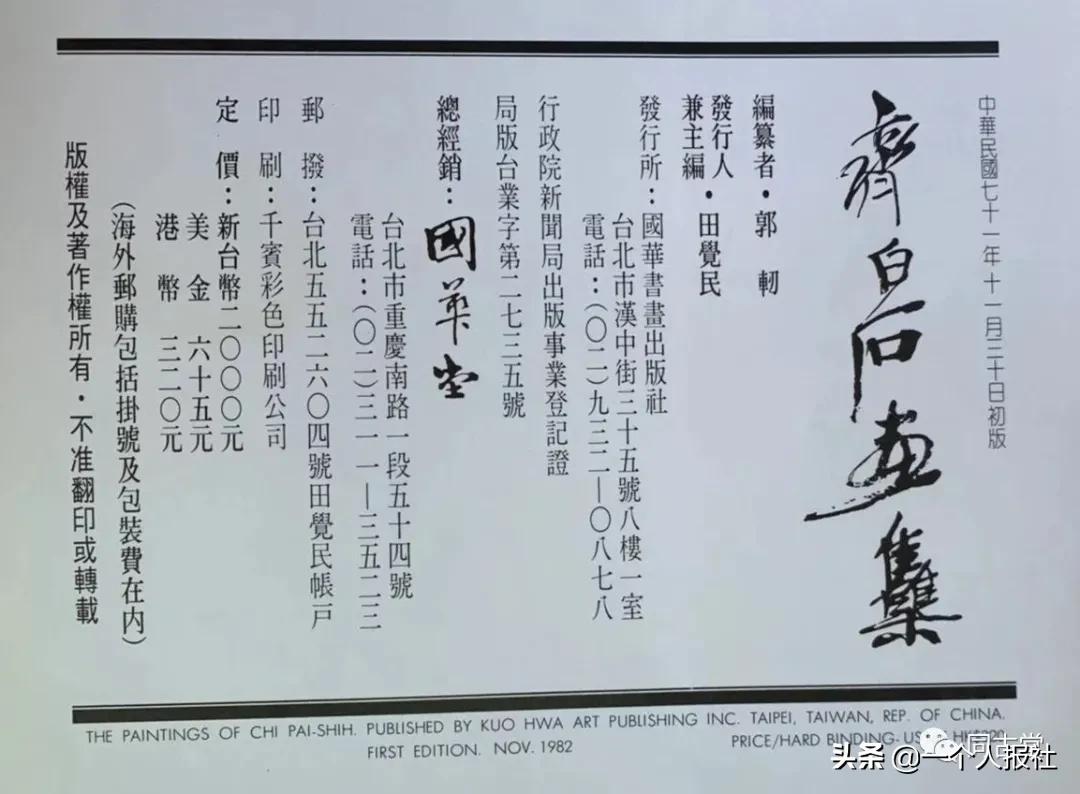 中華民國七十一年十一月三十日初版
齊白石畫集
編纂者・郭 軔
發行人
兼主編・田覺民
發行所：國華書畫出版社
台北市漢中街三十五號八樓一室
電話：(〇二)九三二—〇八七八
行政院新聞局出版事業登記證
局版台業字第二七三五號
總經銷：國華堂
台北市重慶南路一段五十四號
電話：(〇二)三一一—三五二三
郵 撥：台北五五二六〇四號田覺民帳戶
印 刷：千賓彩色印刷公司
定 價：新台幣二〇〇〇元
美 金 六十五元
港 幣 三二〇元
(海外郵購包括掛號及包裝費在内)
版權及著作權所有・不准翻印或轉載
THE PAINTINGS OF CHI PAI-SHIH. PUBLISHED BY KUO HWA ART PUBLISHING INC. TAIPEI, TAIWAN, REP. OF CHINA.
FIRST EDITION. NOV. 1982
PRICE/HARD BINDING- US
头条 @一个人报社